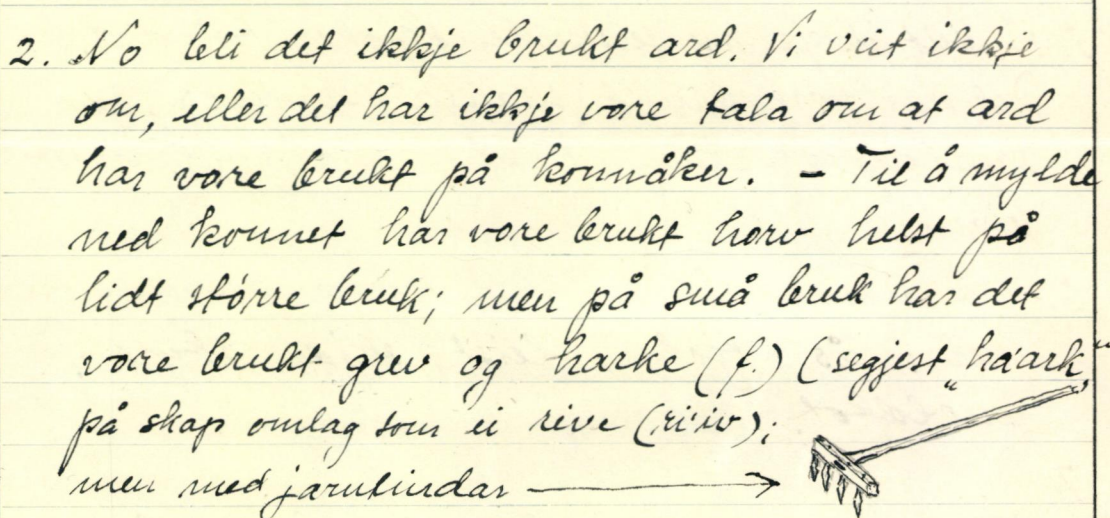 2. No bli det ikkje brukt ard. Vi veit ikkje
om, eller det har ikkje vore tala om at ard
har vore brukt på konnåker. - Til å mylde
ned konnet har vore brukt horv helst på
lidt større bruk; men på små bruk har det
vore brukt grev og harke (f.) (segjest "háark"
på skap omlag som ei rive (riiv);
men med jarntindar